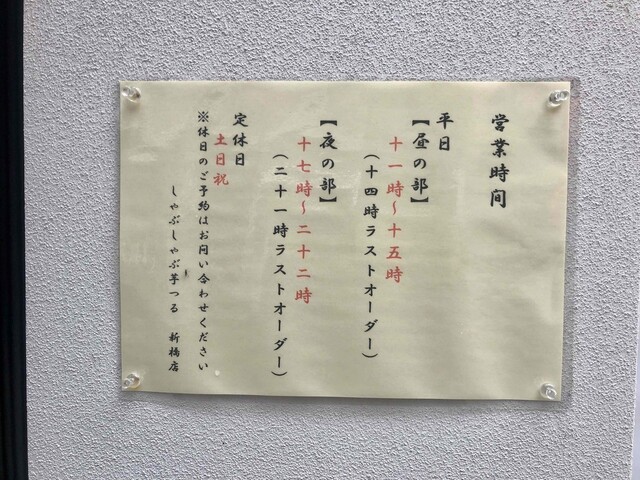 営業時間
平日
【昼の部】
十一時～十五時
（十四時ラストオーダー）
【夜の部】
十七時～二十二時
（二十一時ラストオーダー）
定休日
土日祝
※休日のご予約はお問い合わせください
しゃぶしゃぶ芋つる 新橋店